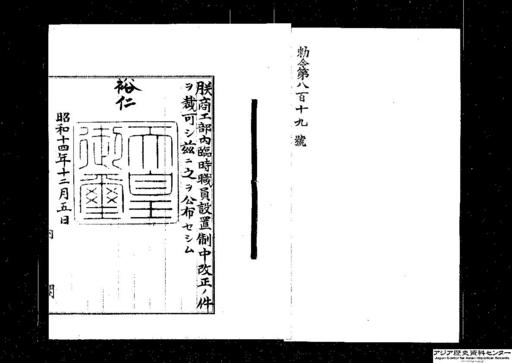 勅令第八百十九號
朕商工部内臨時職員設置制中改正ノ件
ヲ裁可シ茲ニ之ヲ公布セシム
裕仁
天皇御璽
昭和十四年十二月五日
内閣
アジア歴史資料センター
Japan Center for Asian Historical Records